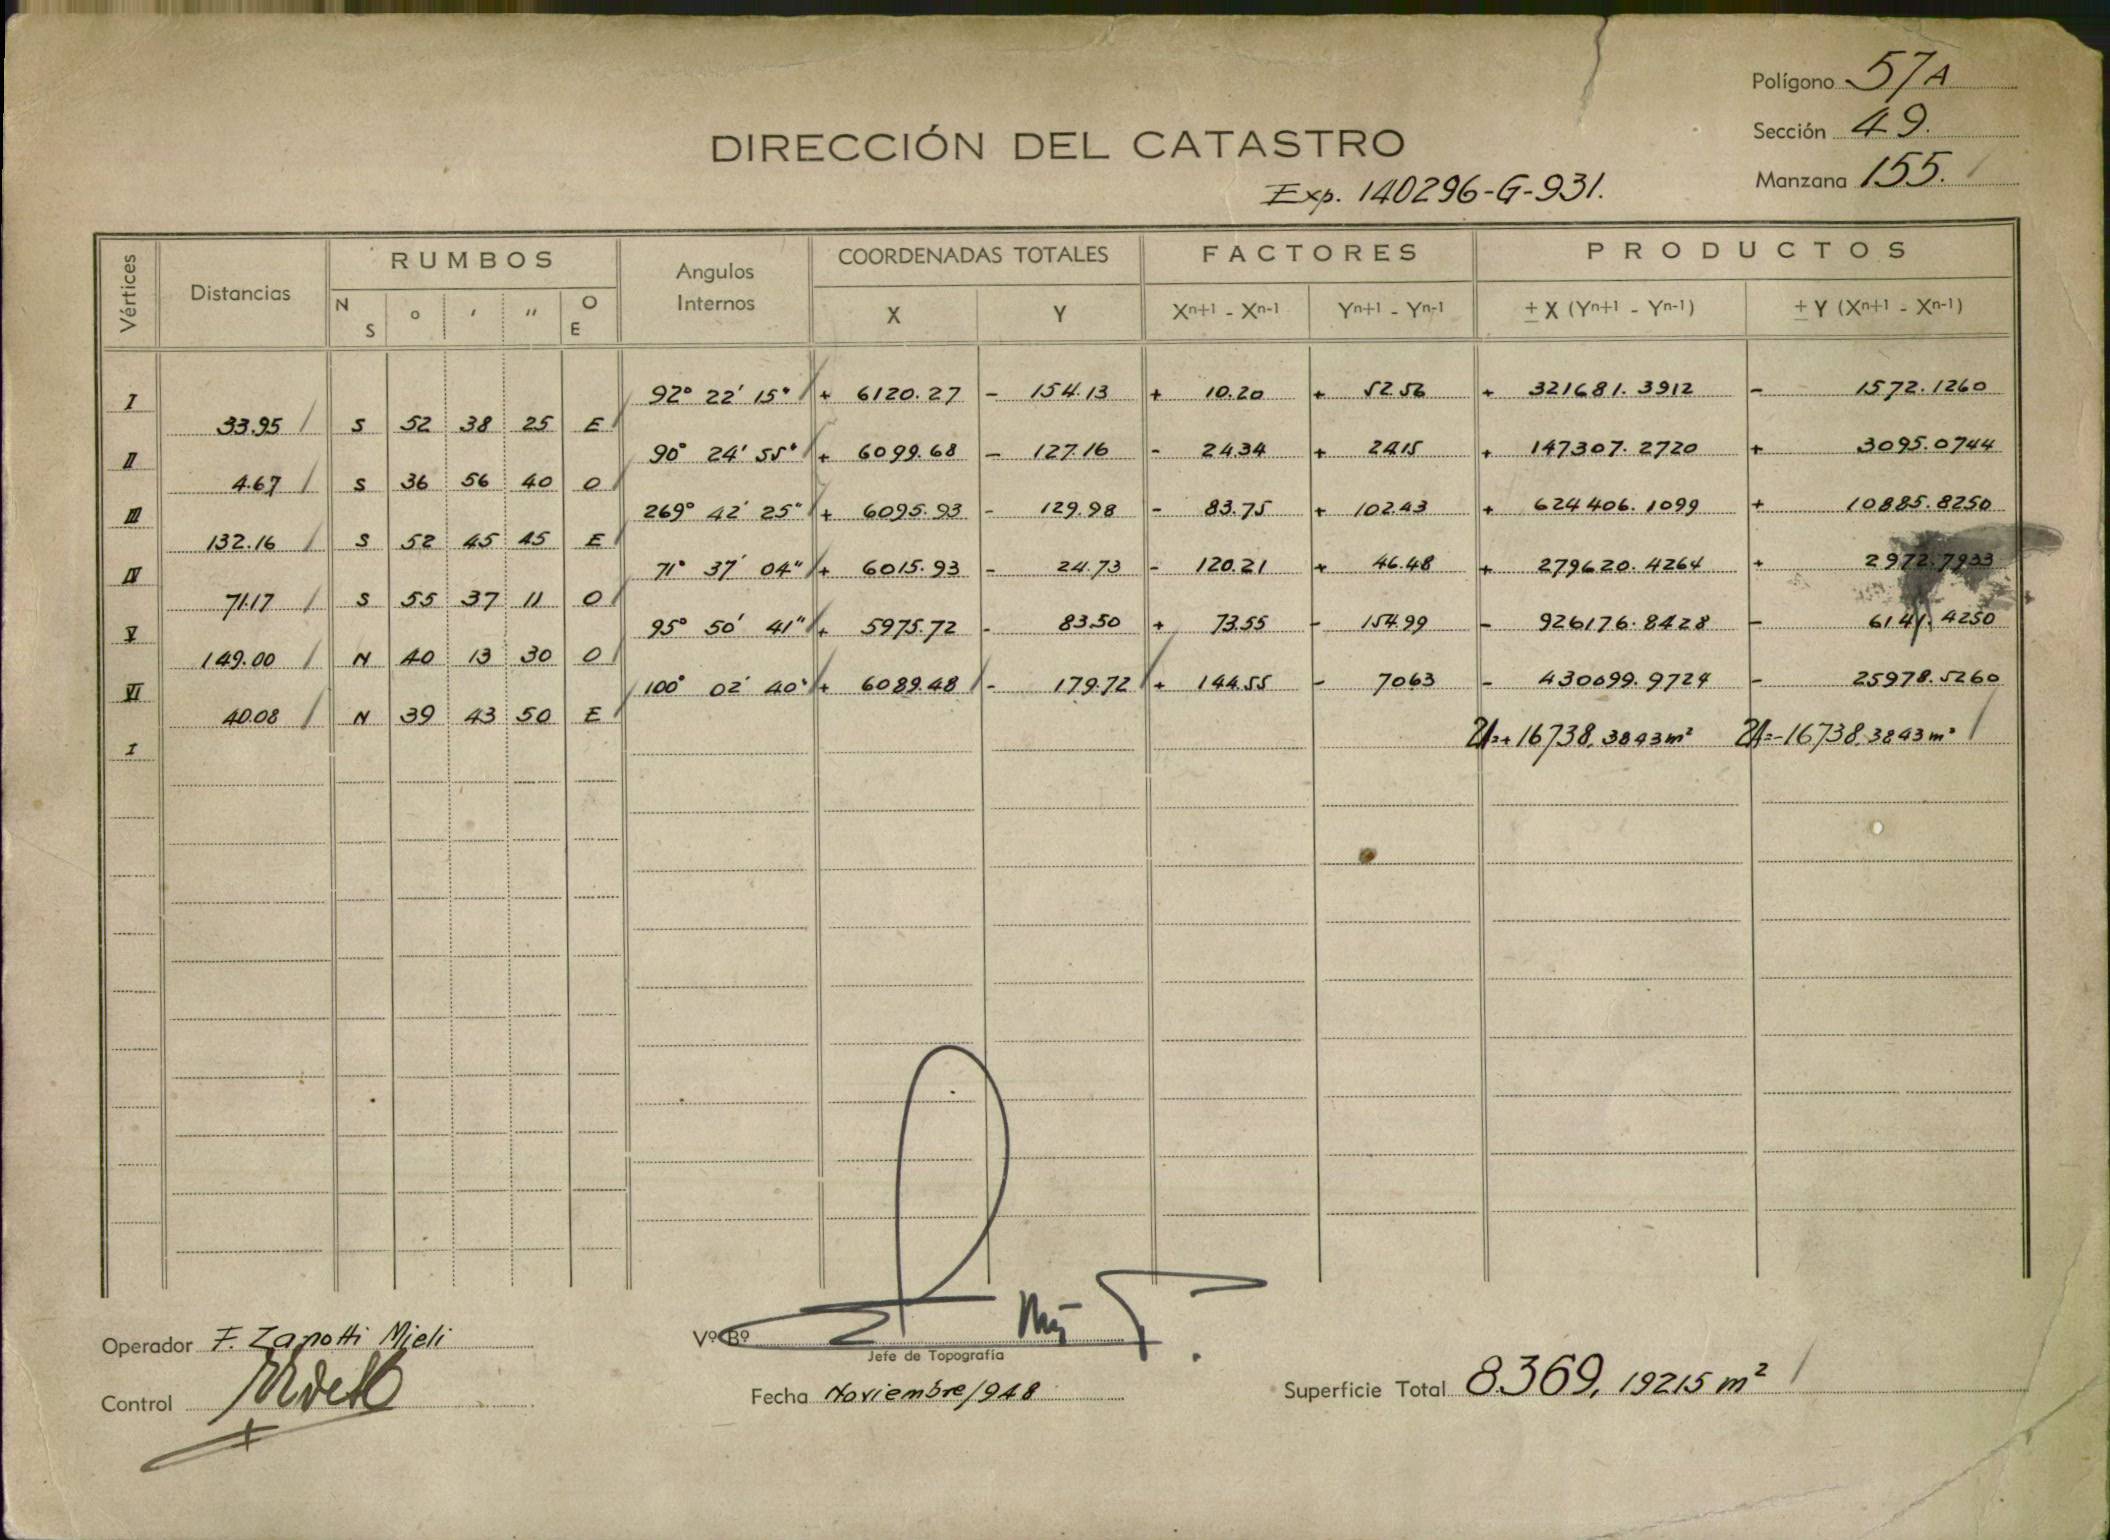 Polígono 57A
Sección 49.
Manzana 155.
DIRECCIÓN DEL CATASTRO
Exp. 140296-G-931.
Vértices Distancias RUMBOS Angulos Internos COORDENADAS TOTALES FACTORES PRODUCTOS
N S ° ' " O E X Y Xn+1 - Xn-1 Yn+1 - Yn-1 ± X (Yn+1 - Yn-1) ± Y (Xn+1 - Xn-1)
I 92° 22' 15" + 6120.27 - 154.13 + 10.20 + 52.56 + 321681.3912 - 1572.1260
33.95 S 52 38 25 E
II 90° 24' 55" + 6099.68 - 127.16 - 24.34 + 24.15 + 147307.2720 + 3095.0744
4.67 S 36 56 40 O
III 269° 42' 25" + 6095.93 - 129.98 - 83.75 + 102.43 + 624406.1099 + 10885.8250
132.16 S 52 45 45 E
IV 71° 37' 04" + 6015.93 - 24.73 - 120.21 + 46.48 + 279620.4264 + 2972.7933
71.17 S 55 37 11 O
V 95° 50' 41" + 5975.72 - 83.50 + 73.55 - 154.99 - 926176.8428 - 6141.4250
149.00 N 40 13 30 O
VI 100° 02' 40" + 6089.48 - 179.72 + 144.55 - 7063 - 430099.9724 - 25978.5260
40.08 N 39 43 50 E
I 2A=+16738,3843 m² 2A=-16738,3843 m²
Operador F. Zanotti Mieli
Control
Vº Bº
Jefe de Topografía
Fecha Noviembre/948
Superficie Total 8369,19215 m²